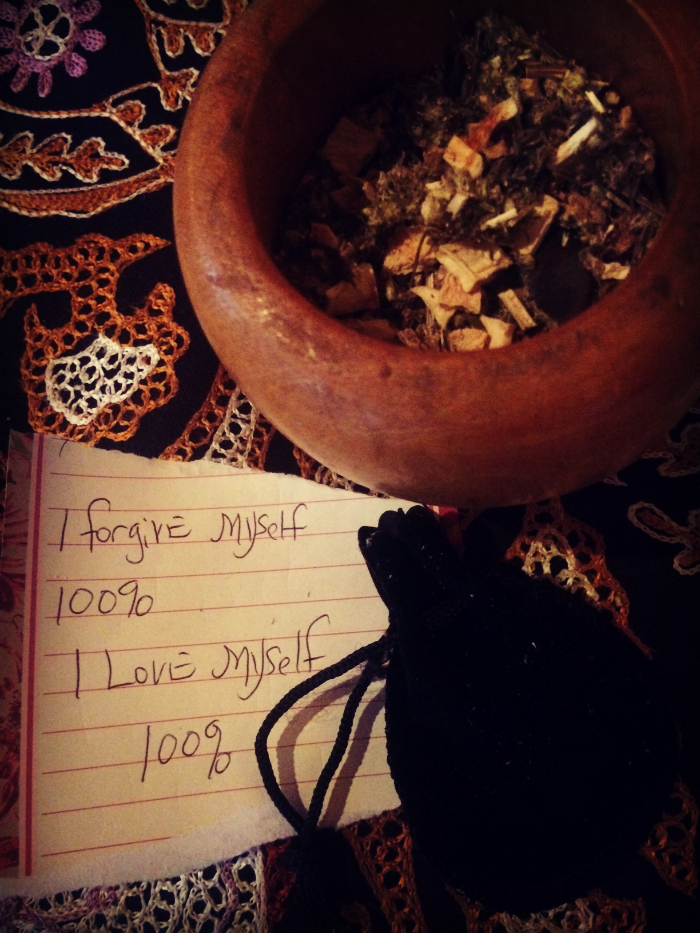 I forgive Myself
100%
I Love Myself
100%